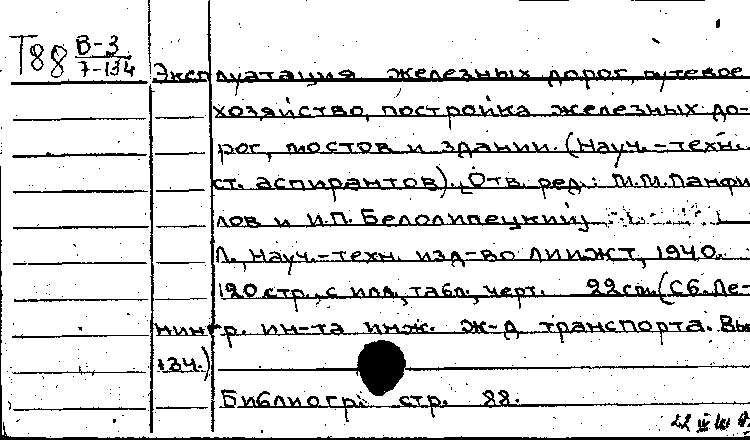 Т88 В-3
7-134
Эксплуатация железных дорог, путевое
хозяйство, постройка железных до-
рог, мостов и зданий. (Науч.-техн.
ст. аспирантов). [Отв. ред.: М.М.Панфи
лов и И.П. Белолипецкий]
Л., Науч.-техн. изд-во ЛИИЖТ, 1940.
120 стр., с илл., табл., черт. 22 см. (Сб. Ле-
нингр. ин-та инж. ж-д транспорта. Вы
134.)
Библиогр. стр. 88.
22 III